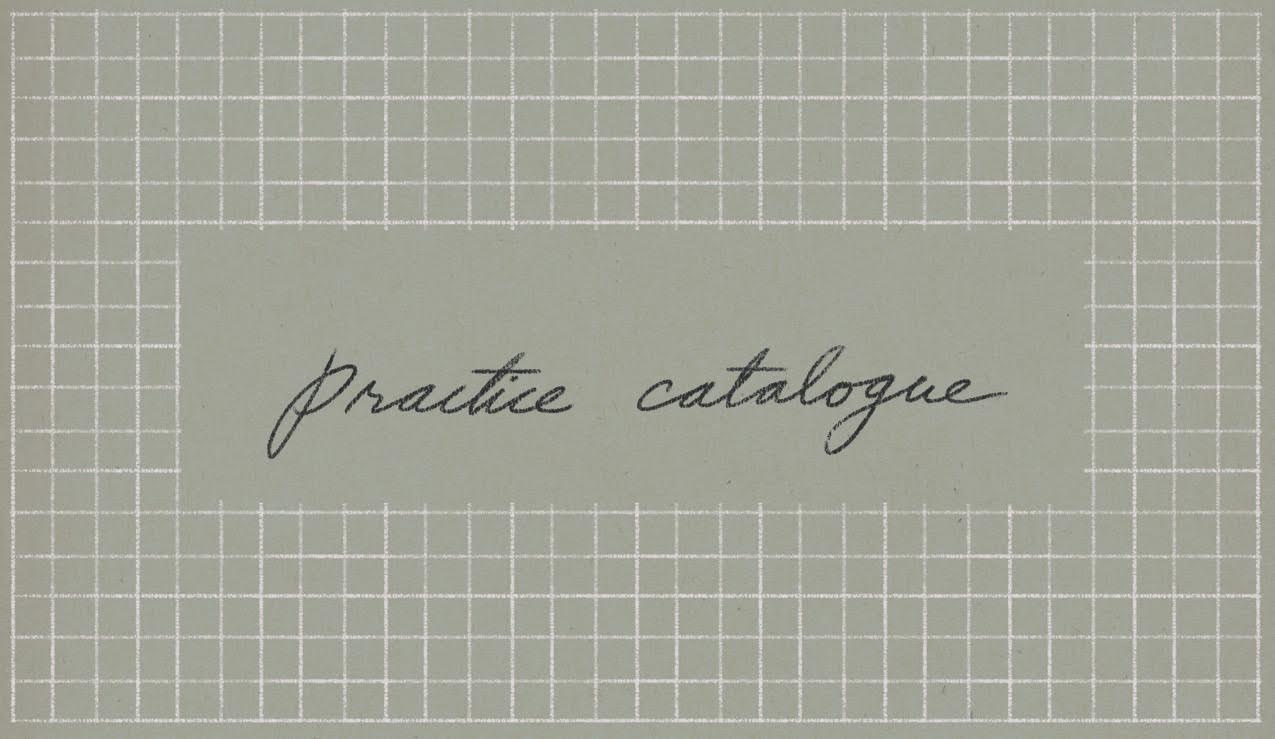 practice catalogue